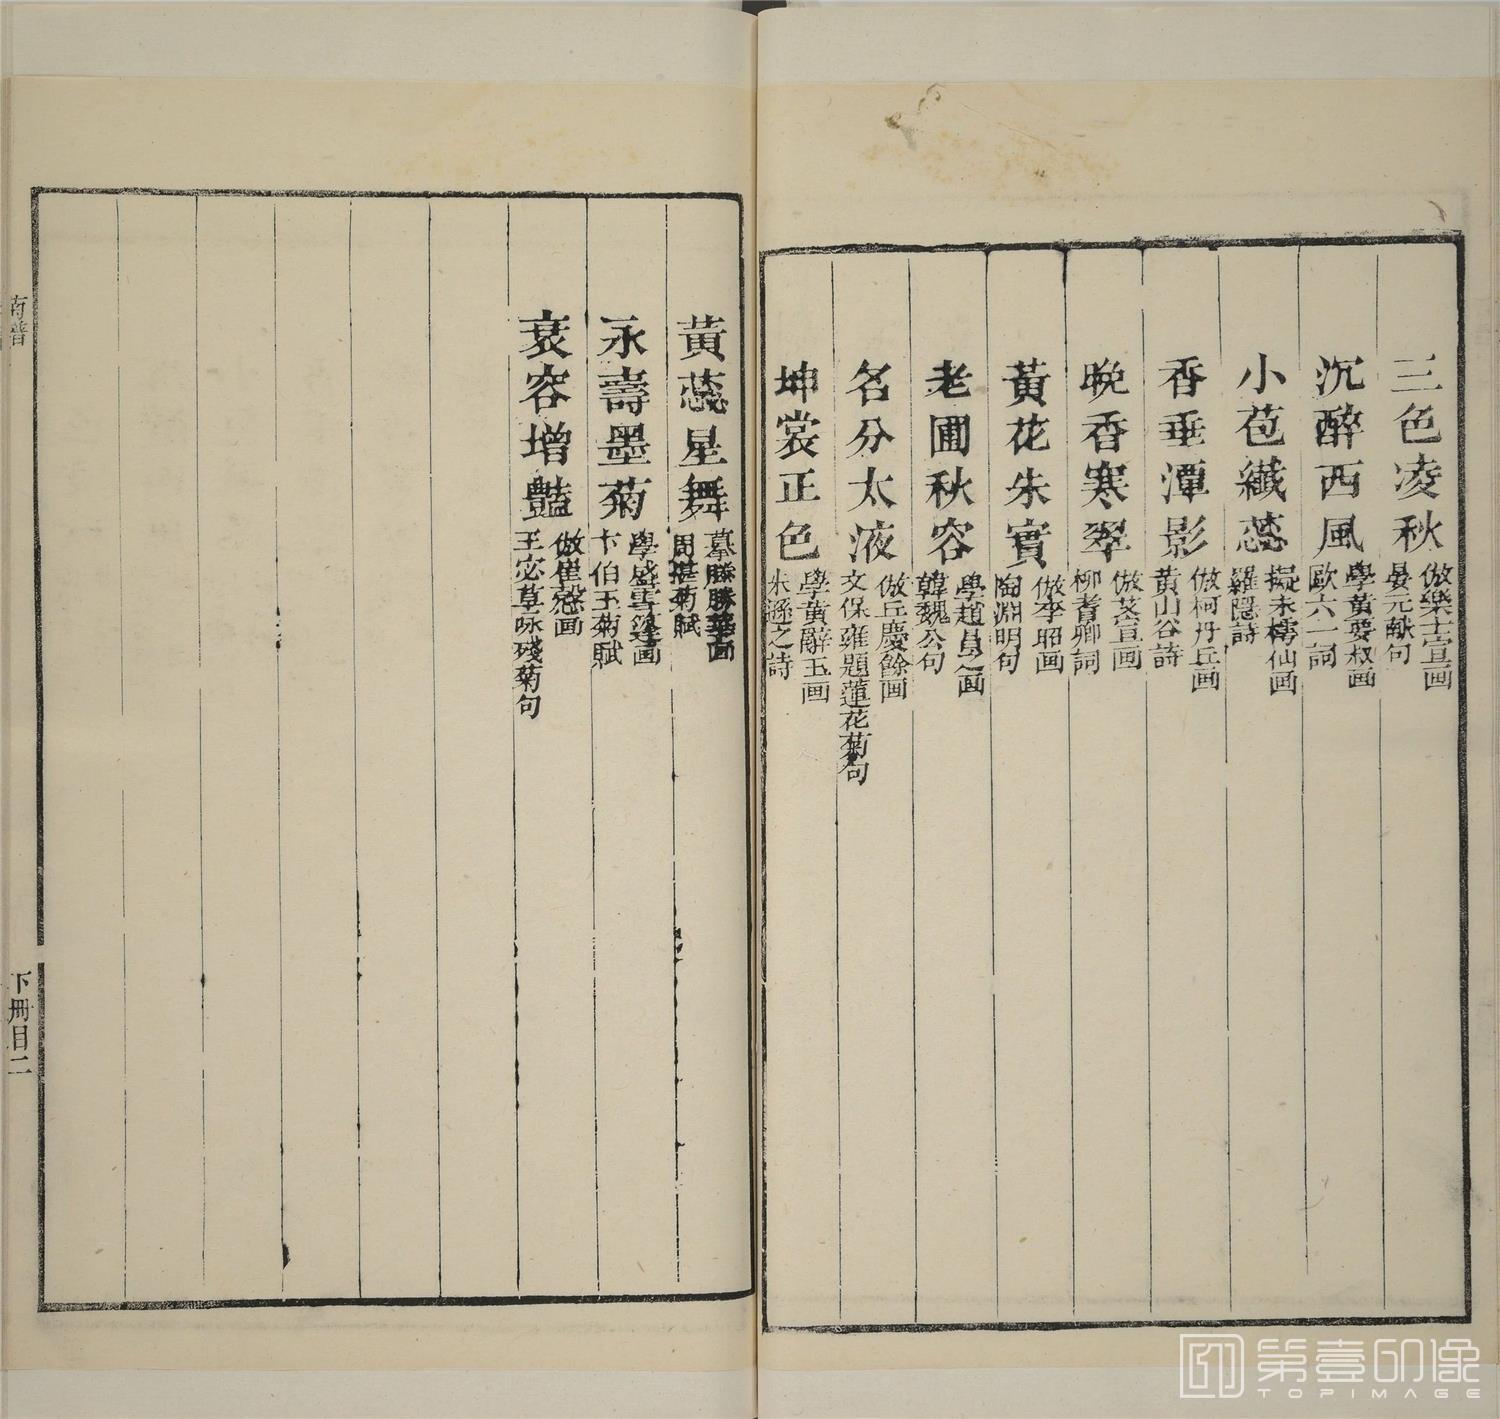 三色凌秋 倣樂士宣画 晏元献句
沉醉西風 學黃要叔画 歐六一詞
小苞纖蕊 擬朱樗仙画 羅隱詩
香垂潭影 倣柯丹丘画 黃山谷詩
晚香寒翠 倣 宣画 柳耆卿詞
黃花朱實 倣李昭画 陶淵明句
老圃秋容 學趙昌之画 韓魏公句
名分太液 倣丘慶餘画 文保雍題蓮花菊句
坤裳正色 學黃辭玉画 朱遜之詩
黃蕊星舞 摹滕勝華画 周堪菊賦
永壽墨菊 學盛雪蓬画 卞伯玉菊賦
衰容增豔 倣崔慤画 王宓草咏殘菊句
下冊目二
第壹印像
TOPIMAGE